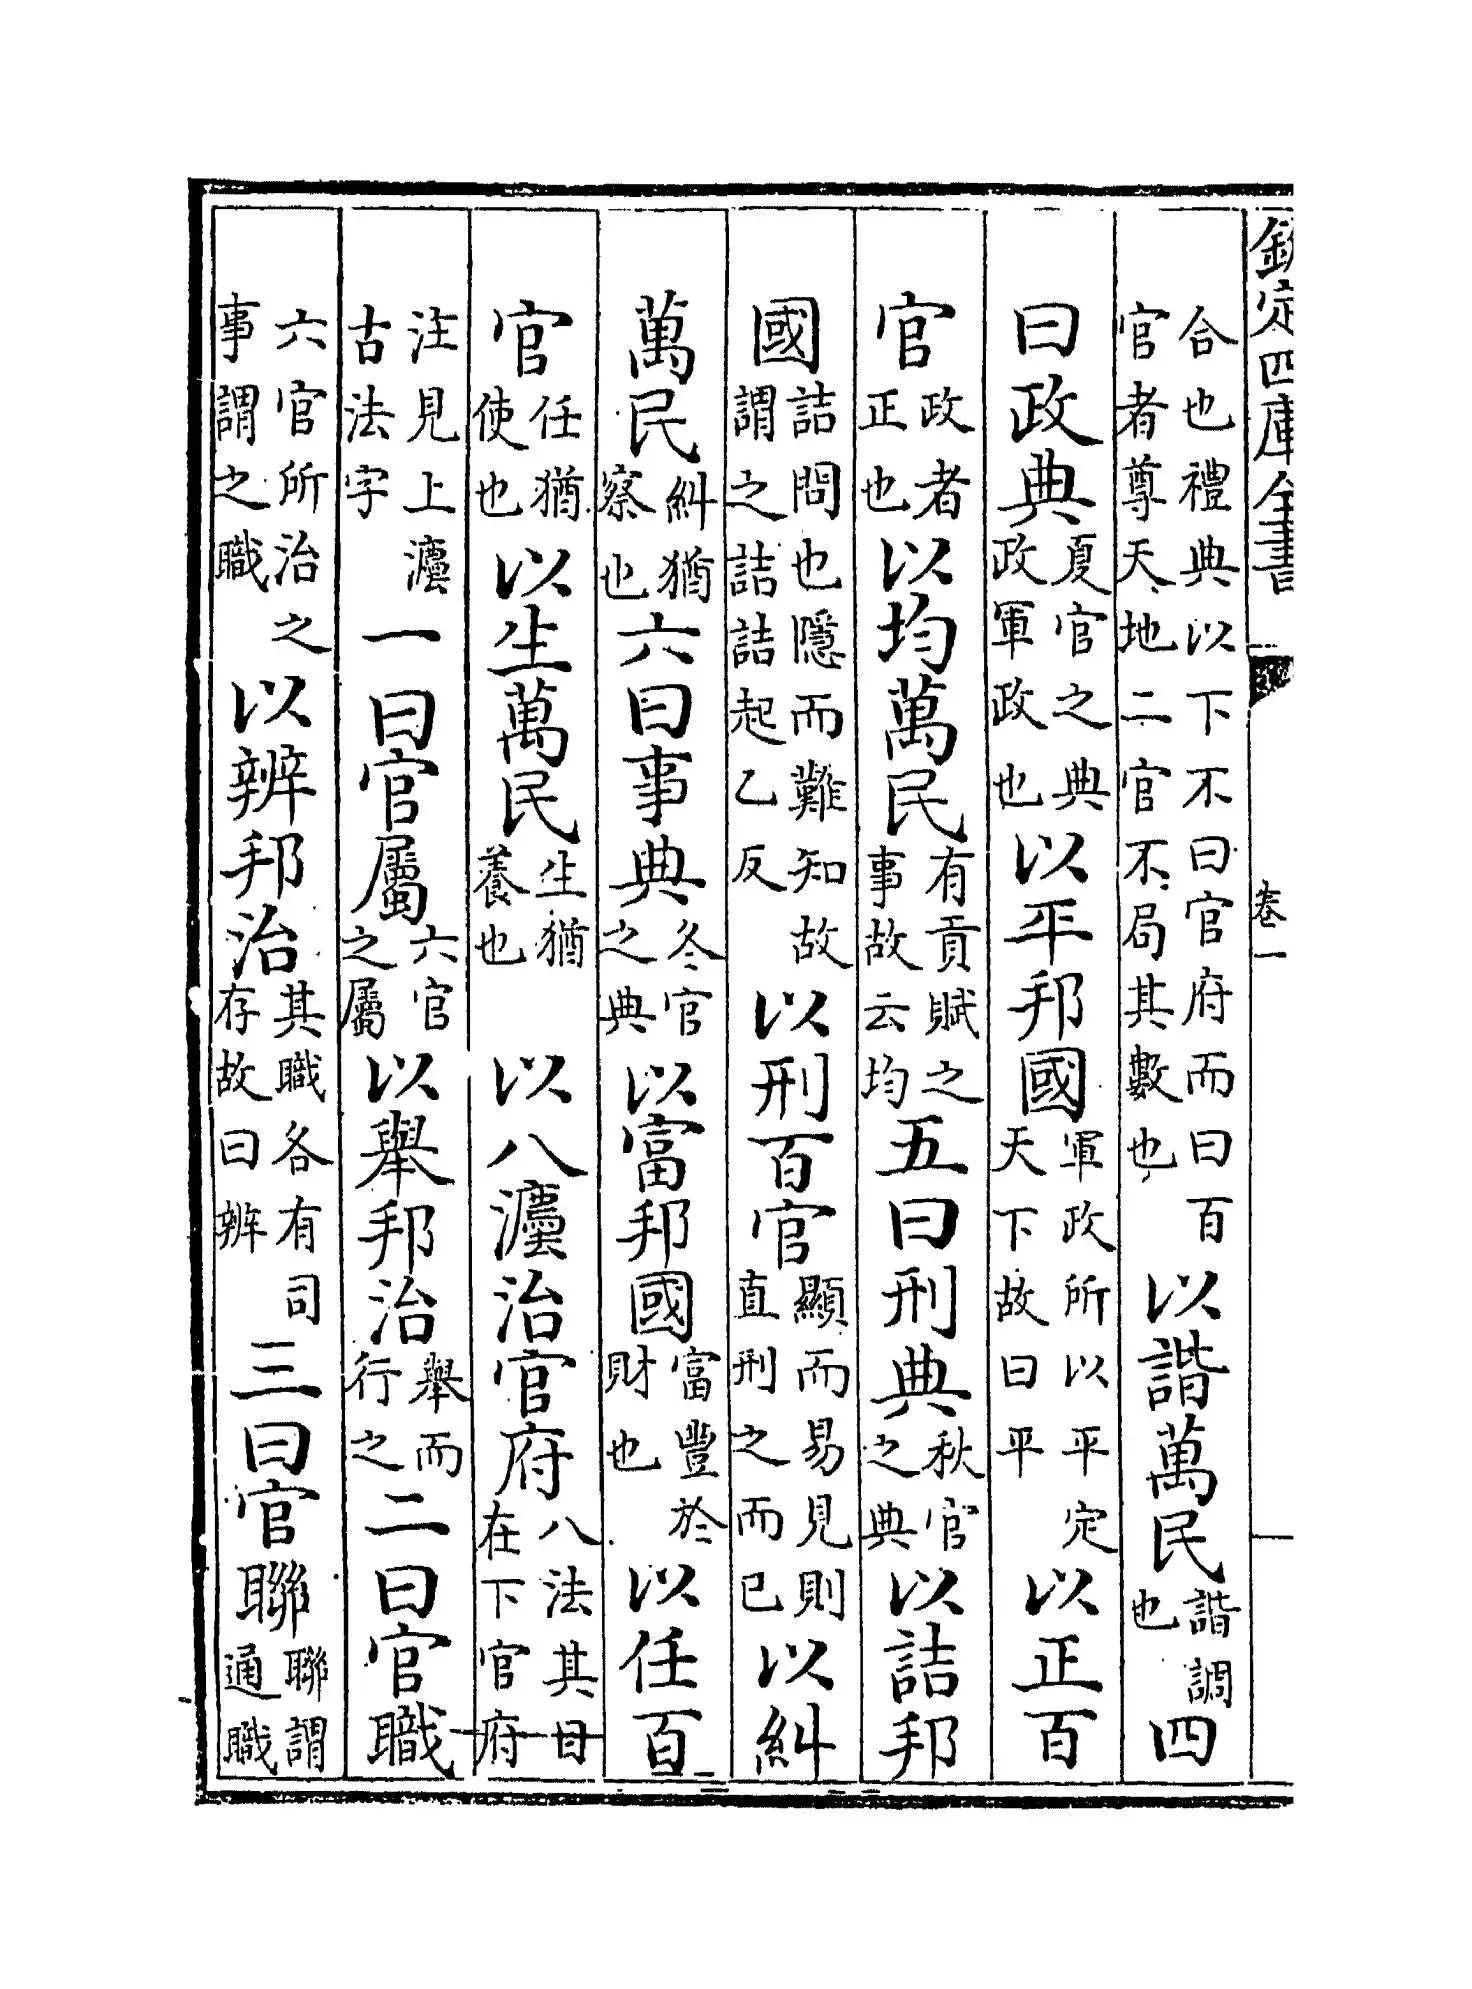 欽定四庫全書 卷一
合也禮典以下不曰官府而曰百官者尊天地二官不局其數也以諧萬民諧調也四
曰政典夏官之典政軍政也以平邦國軍政所以平定天下故曰平以正百
官政者正也以均萬民有貢賦之事故云均五曰刑典秋官之典以詰邦
國詰問也隱而難知故謂之詰詰起乙反以刑百官顯而易見則直刑之而已以糾
萬民糾猶察也六曰事典冬官之典以富邦國富豐於財也以任百
官任猶使也以生萬民生猶養也 以八灋治官府八法其目在下官府
注見上灋古法字一曰官屬六官之屬以舉邦治舉而行之二曰官職
六官所治之事謂之職以辨邦治其職各有司存故曰辨三曰官聯聯謂通職